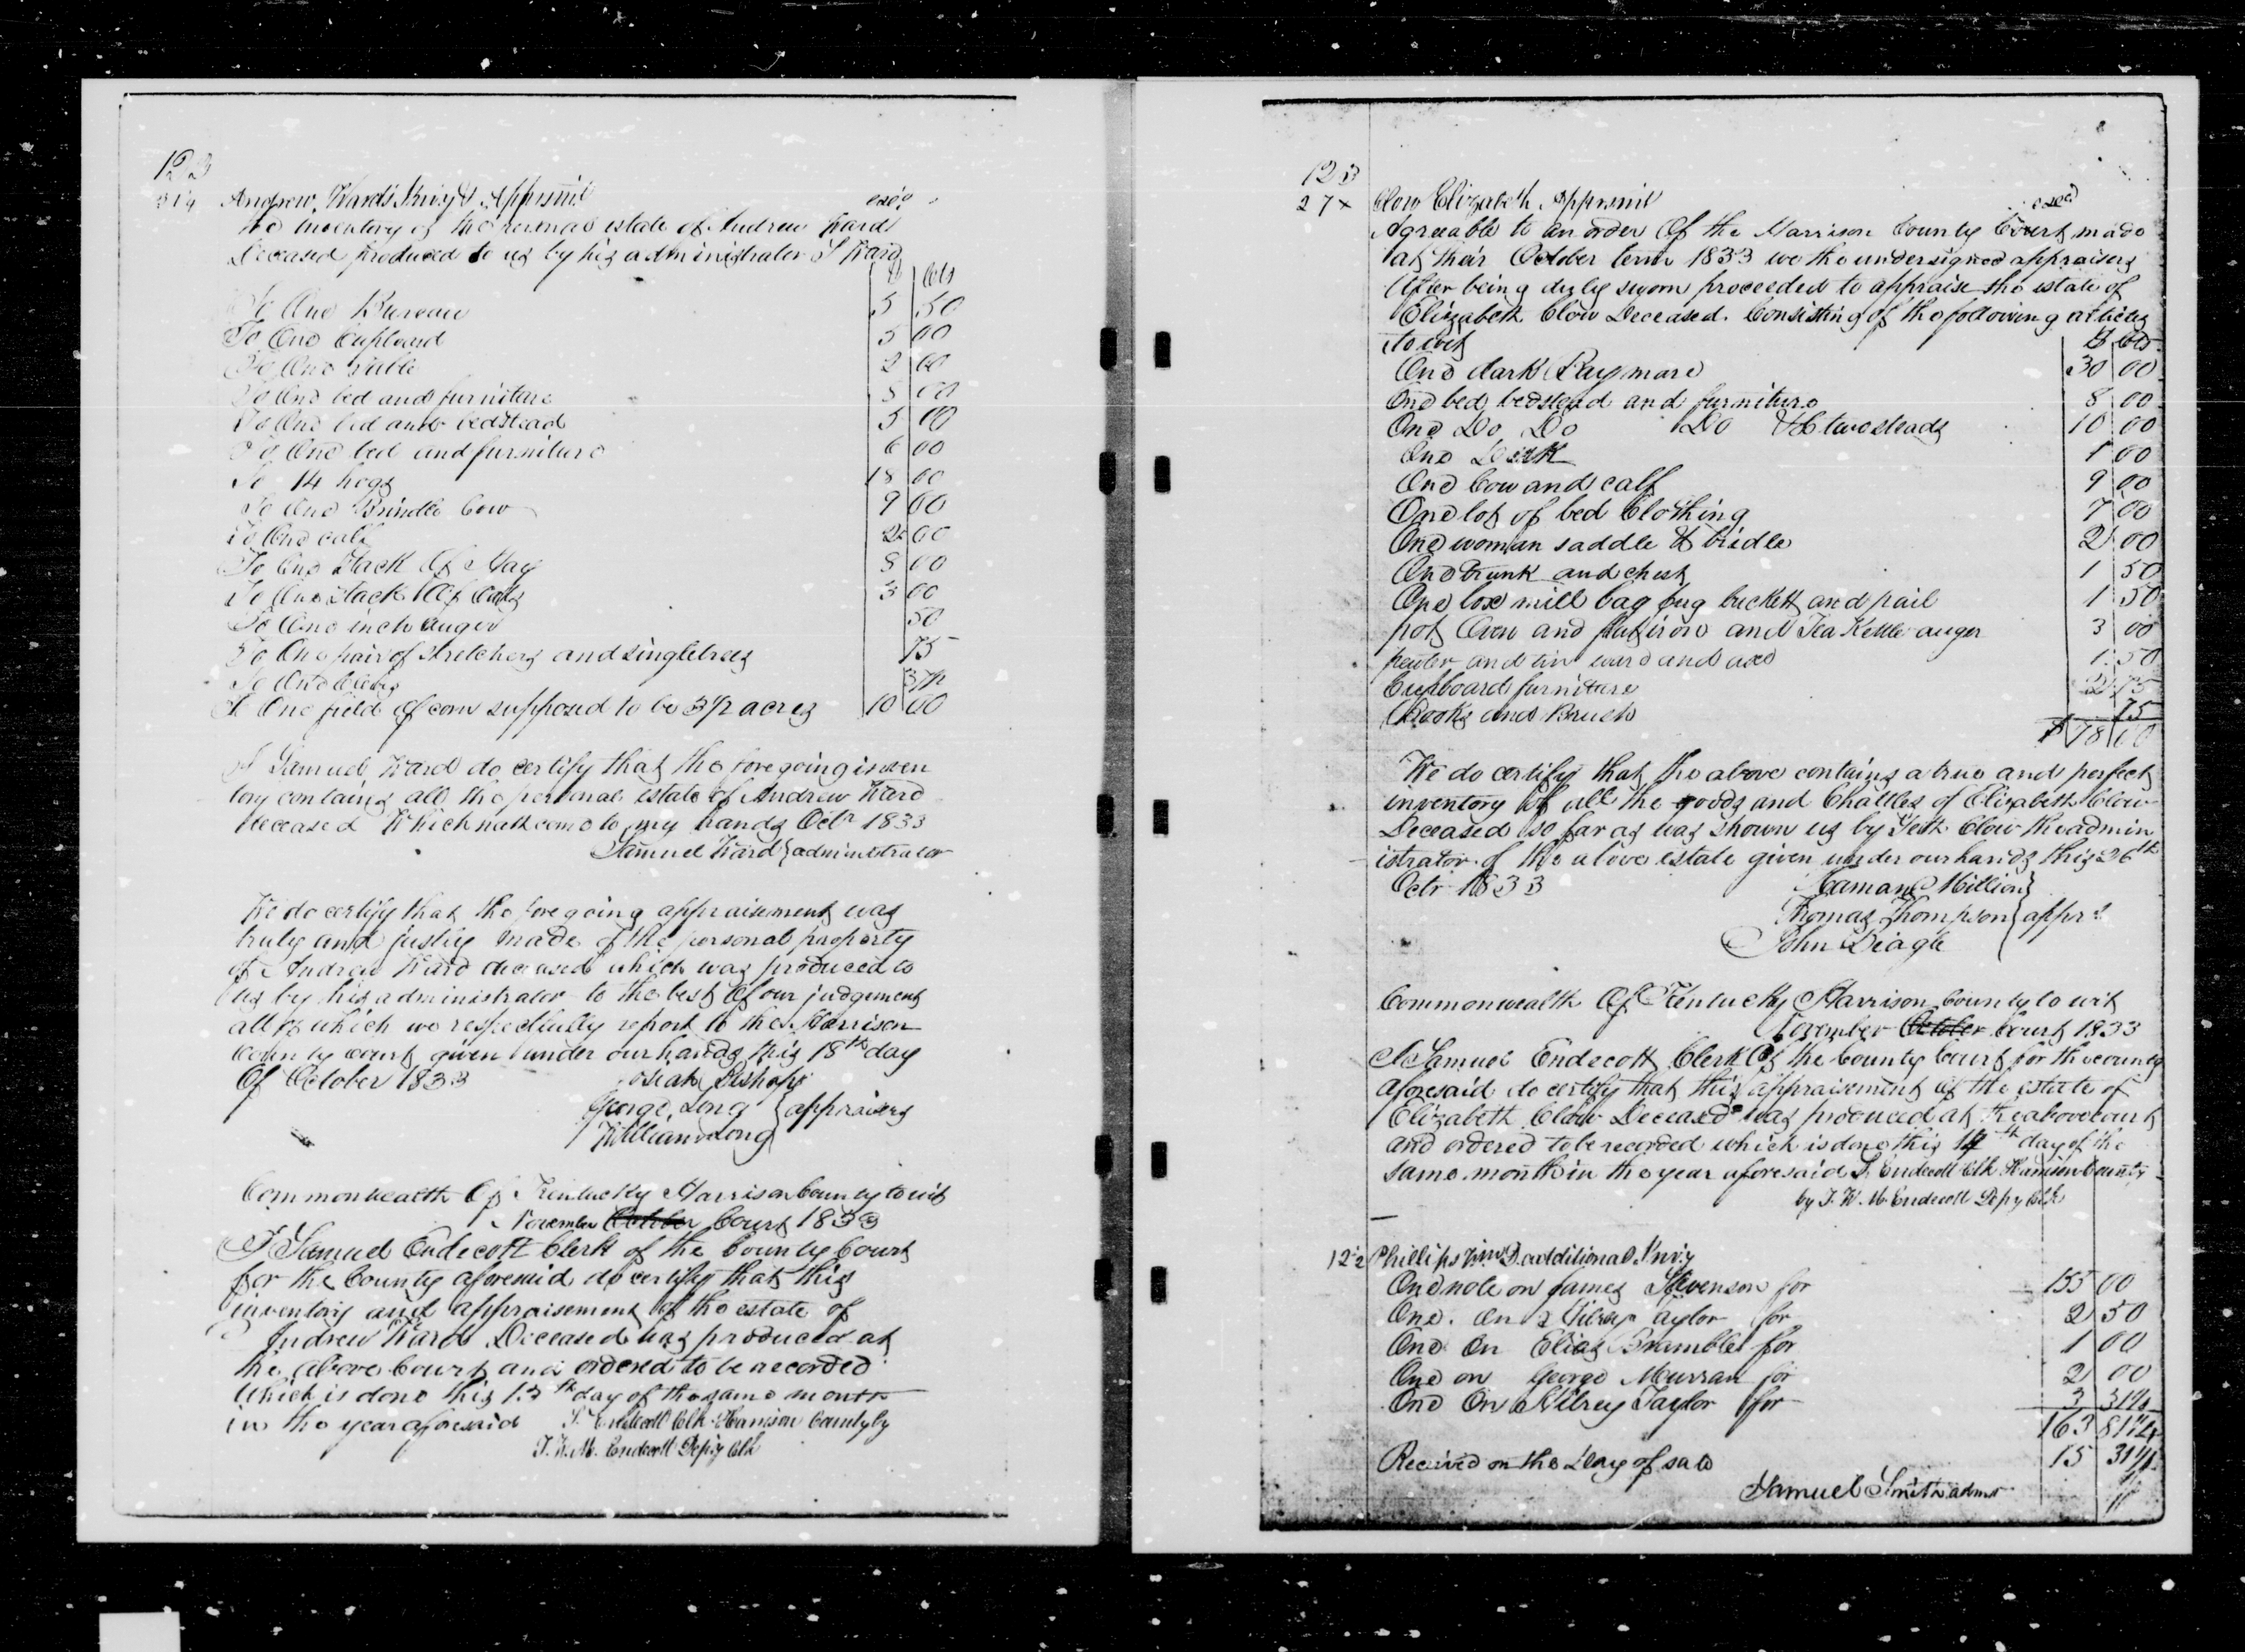 122
Andrew Ward's Invy & Apprsmt exd
The inventory of the personal estate of Andrew Ward
Deceased produced to us by his administrator S Ward
$ Cts
To One Bureau 5 50
To One Cupboard 5 00
To One Table 2 00
To One bed and furniture 8 00
To One bed and bedstead 5 00
To One bed and furniture 6 00
To 14 hogs 18 00
To One Brindle Cow 9 00
To One calf 2 00
To One Stack Of Hay 8 00
To One Stack Of Oats 3 00
To One inch auger 50
To One pair of stretchers and singletrees 75
To One 37½
To One field of corn supposed to be 3 1/2 acres 10 00
I Samuel Ward do certify that the foregoing inven
tory contains all the personal estate of Andrew Ward
deceased Which hath come to my hands Octr 1833
Samuel Ward } administrator
We do certify that the foregoing appraisement was
truly and justly made of the personal property
of Andrew Ward deceased which was produced to
us by his administrator to the best Of our judgement
all of which we respectfully report to the Harrison
County court given under our hands this 18th day
Of October 1833 Bishop
George Long } appraisers
William Long
Commonwealth Of Kentucky Harrison County to wit
November October Court 1833
I Samuel Endecott Clerk of the County Court
for the County aforesaid do certify that this
inventory and appraisement of the estate of
Andrew Ward Deceased was produced at
the above Court and ordered to be recorded
Which is done this 13th day of the same month
in the year aforesaid S. Endecott Clk Harrison County by
T. W. M. Endecott Depy Clk
123
27x Clow Elizabeth Apprsmt exed
Agreeable to an order Of the Harrison County Court made
at their October term 1833 we the undersigned appraisers
After being duly sworn proceeded to appraise the estate of
Elizabeth Clow Deceased. Consisting of the following articles
to wit $ Cts
One dark Bay mare 30 00
One bed bedstead and furniture 8 00
One Do Do Do & two steads 10 00
One 1 00
One Cow and calf 9 00
One lot of bed Clothing 7 00
One woman saddle & bridle 2 00
One Trunk and chest 1 50
One box mill bag jug buckett and pail 1 50
pot Oven and flatiron and Tea Kettle auger 3 00
pewter and tin ward and axe 1 50
Cupboard furniture 2 75
Books and Brush 75
$ 78 00
We do certify that the above contains a true and perfect
inventory Of all the goods and Chattles of Elizabeth Clow
Deceased so far as was shown us by Seth Clow the admin
istrator of the above estate given under our hands this 26th
Octr 1833 Million }
Thomas Thompson } apprs
John Diagle
Commonwealth Of Kentucky Harrison County to wit
November October Court 1833
I Samuel Endecott Clerk Of the County Court for the county
aforesaid do certify that this appraisement of the estate of
Elizabeth Clow Deceased was produced at the above court
and ordered to be recorded which is done this 14th day of the
same month in the year aforesaid S. Endecott Clk Harrison County
by T. W. M. Endecott Depy Clk
122 Phillips Wm D additional Invy
One note on James Stevenson for 155 00
One. On Taylor for 2 50
One On Elias Bramblet for 1 00
One on George Murran for 2 00
One On Wilrey Taylor for 3 31¼
163 81¼
Received on the Day of sale 15 31¼
Samuel Smith admr